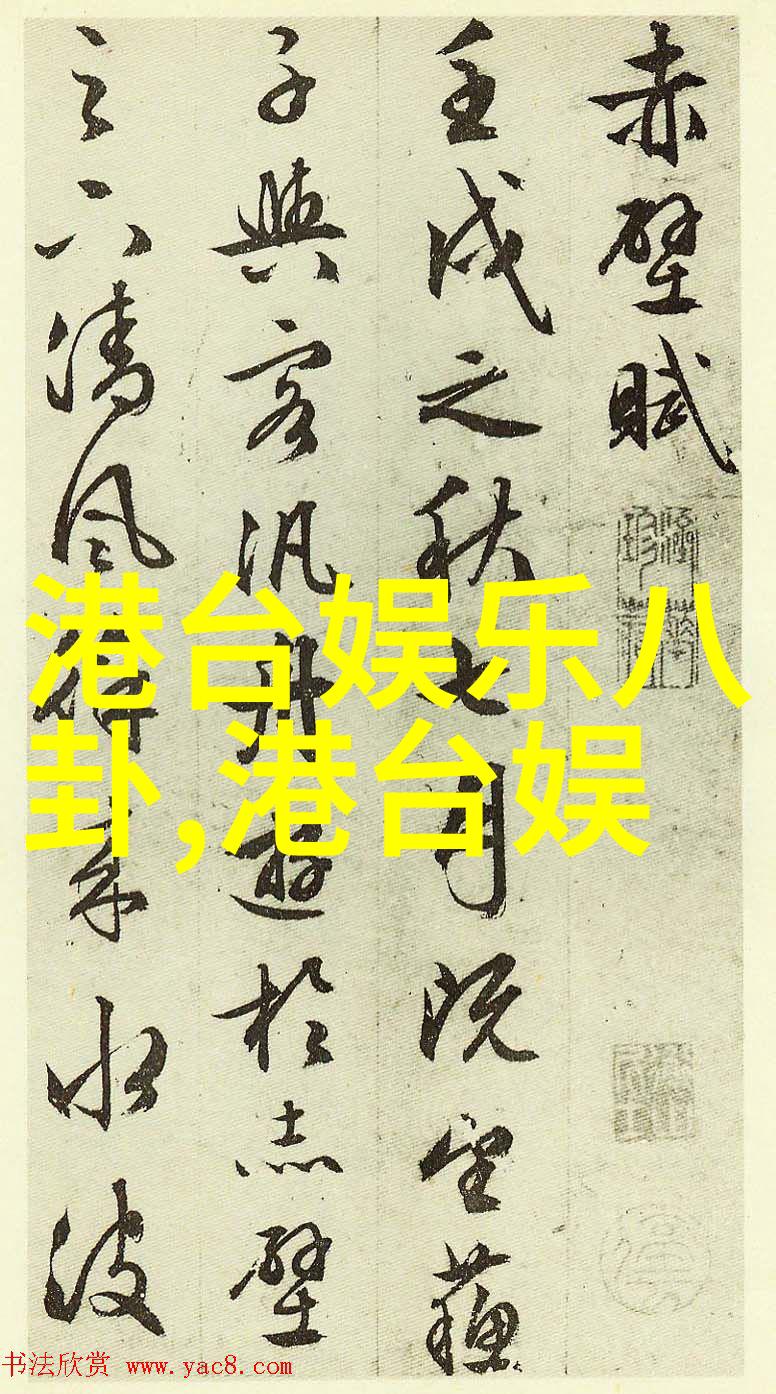 赤壁賦
壬戌之秋七月既望蘇
子與客汎舟遊於赤壁
之下清風徐来水波
港台娱乐八
卦,港台娱
书法欣赏 www.yac8.com